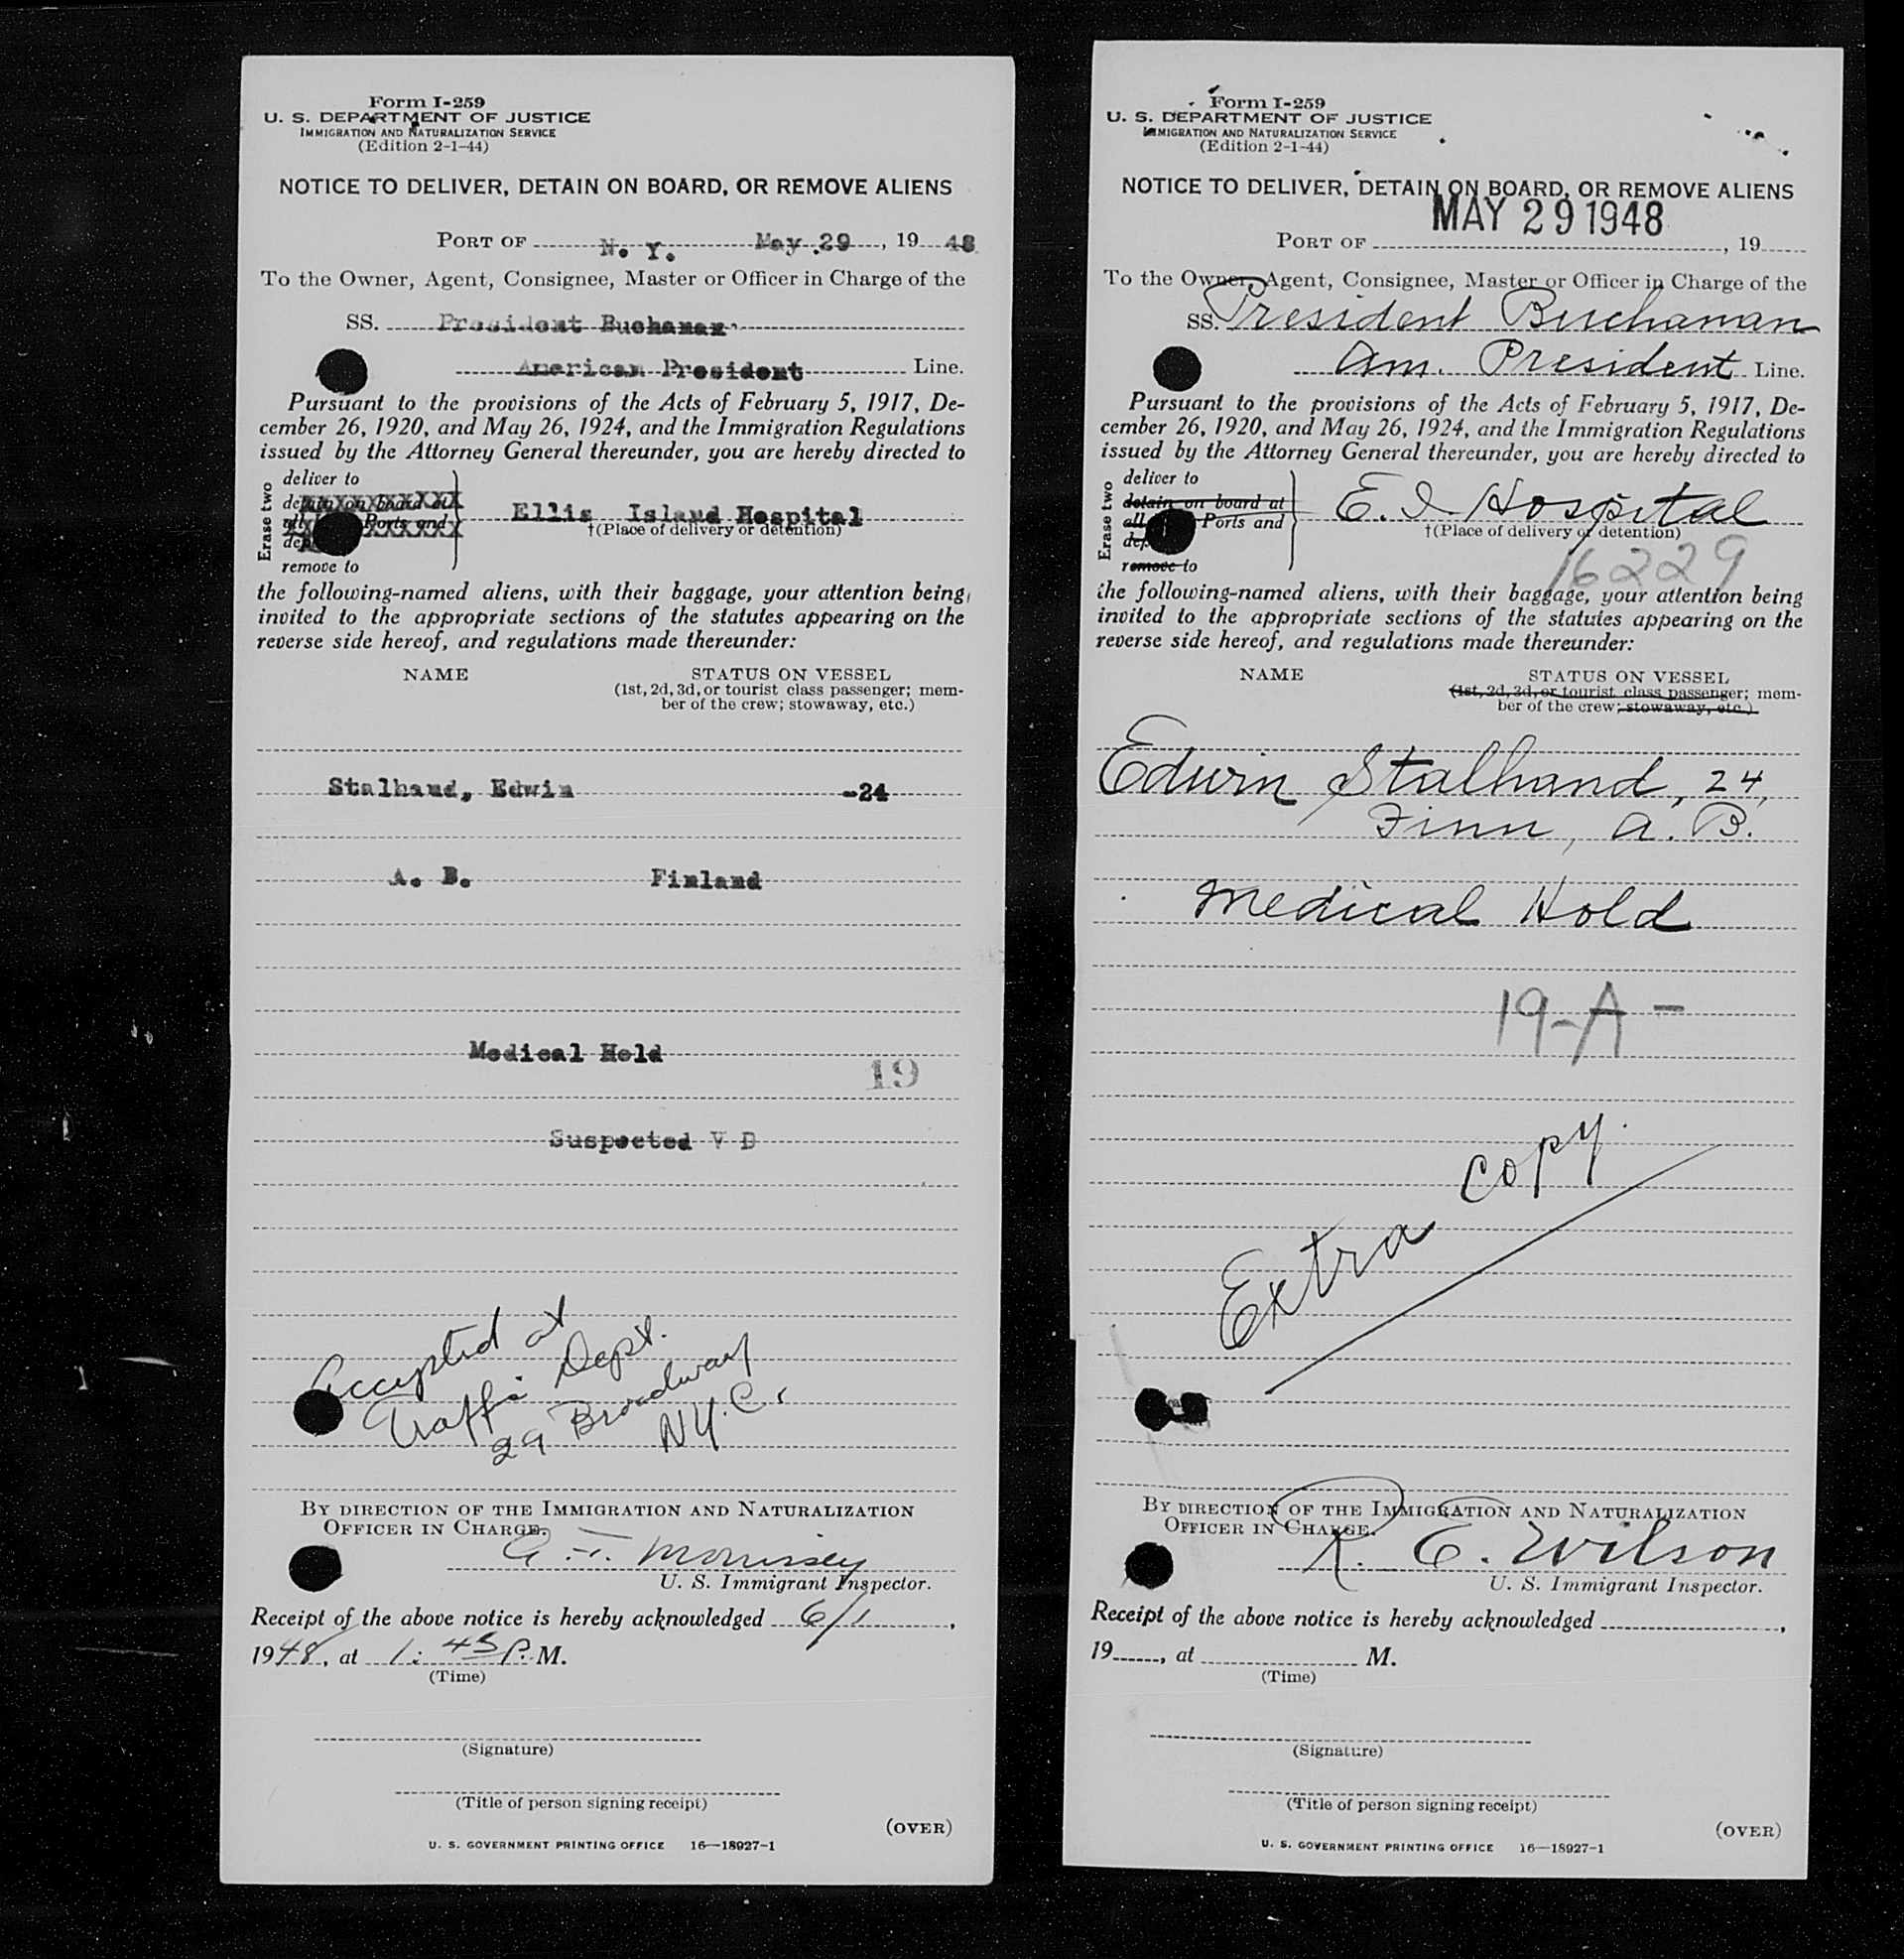 Form I-259
U. S. DEPARTMENT OF JUSTICE
IMMIGRATION AND NATURALIZATION SERVICE
(Edition 2-1-44)
NOTICE TO DELIVER, DETAIN ON BOARD, OR REMOVE ALIENS
PORT OF N. Y. May 29, 19 48
To the Owner, Agent, Consignee, Master or Officer in Charge of the
SS. President Buchanan
American President Line.
Pursuant to the provisions of the Acts of February 5, 1917, De-
cember 26, 1920, and May 26, 1924, and the Immigration Regulations
issued by the Attorney General thereunder, you are hereby directed to
Erase two
deliver to
detain on board at
all Ports and
remove to
Ellis Island Hospital
†(Place of delivery or detention)
the following-named aliens, with their baggage, your attention being
invited to the appropriate sections of the statutes appearing on the
reverse side hereof, and regulations made thereunder:
NAME STATUS ON VESSEL
(1st, 2d, 3d, or tourist class passenger; mem-
ber of the crew; stowaway, etc.)
Stalhand, Edwin -24
A. B. Finland
Medical Hold
19
Suspected V D
Accepted at
Traffic Dept.
29 Broadway
N.Y.C.
BY DIRECTION OF THE IMMIGRATION AND NATURALIZATION
OFFICER IN CHARGE.
Morrissey
U. S. Immigrant Inspector.
Receipt of the above notice is hereby acknowledged 6/1,
1948, at 1:45 P. M.
(Time)
(Signature)
(Title of person signing receipt)
(OVER)
U. S. GOVERNMENT PRINTING OFFICE 16—18927-1
Form I-259
U. S. DEPARTMENT OF JUSTICE
IMMIGRATION AND NATURALIZATION SERVICE
(Edition 2-1-44)
NOTICE TO DELIVER, DETAIN ON BOARD, OR REMOVE ALIENS
MAY 29 1948
PORT OF , 19
To the Owner, Agent, Consignee, Master or Officer in Charge of the
SS. President Buchanan
Am. President Line.
Pursuant to the provisions of the Acts of February 5, 1917, De-
cember 26, 1920, and May 26, 1924, and the Immigration Regulations
issued by the Attorney General thereunder, you are hereby directed to
Erase two
deliver to
detain on board at
all Ports and
remove to
E. I Hospital
†(Place of delivery or detention)
16229
the following-named aliens, with their baggage, your attention being
invited to the appropriate sections of the statutes appearing on the
reverse side hereof, and regulations made thereunder:
NAME STATUS ON VESSEL
(1st, 2d, 3d, or tourist class passenger; mem-
ber of the crew; stowaway, etc.)
Edwin Stalhand, 24,
Finn, A. B.
Medical Hold
19-A-
Extra copy.
BY DIRECTION OF THE IMMIGRATION AND NATURALIZATION
OFFICER IN CHARGE.
R. E. Wilson
U. S. Immigrant Inspector.
Receipt of the above notice is hereby acknowledged ,
19 , at M.
(Time)
(Signature)
(Title of person signing receipt)
(OVER)
U. S. GOVERNMENT PRINTING OFFICE 16—18927-1